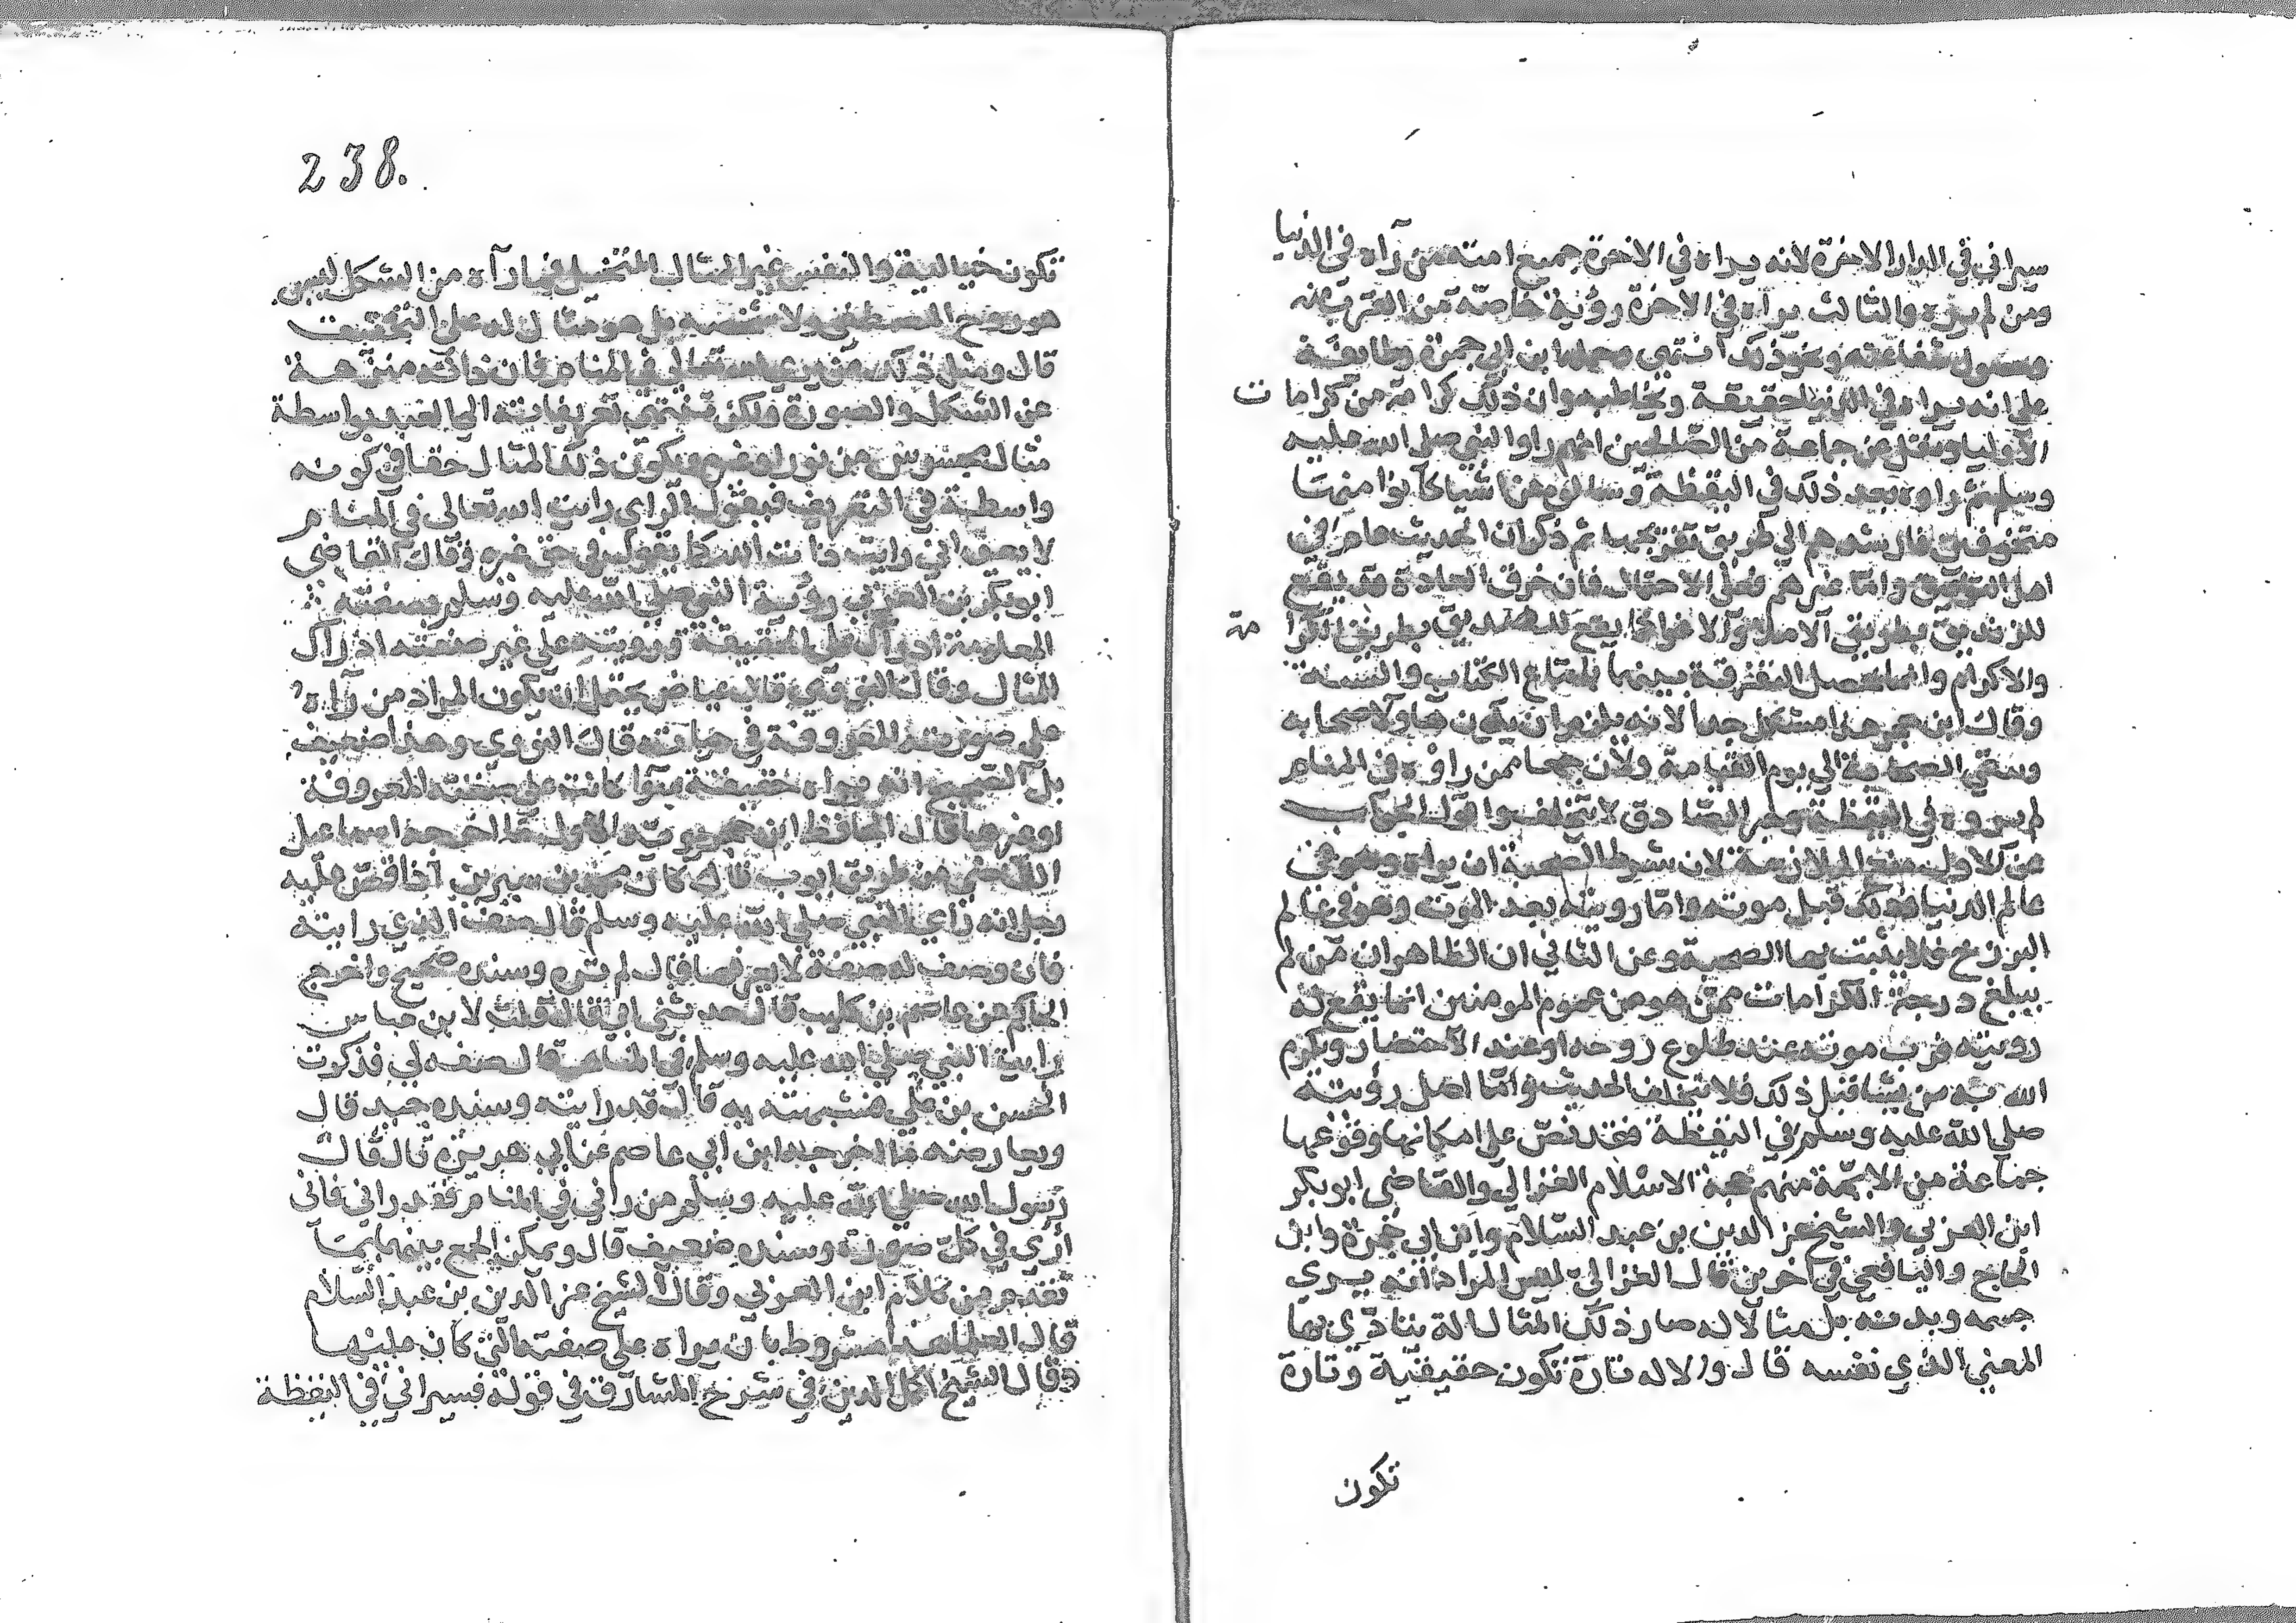 سيراني في الدار الاخرة لانه يراه في الاخرة جميع امته من رآه في الدنيا
ومن لم يره والثالث يراه في الاخرة رؤية خاصة من القرب منه
وحصول شفاعته ونحو ذلك انتهى وحملها ابن ابي جمرة وطايفة
على انه يراه في الدنيا حقيقة ويخاطبه وان ذلك كرامة من كرامات
الاوليا ونقل عن جماعة من الصالحين انهم راوا النبي صلى الله عليه
وسلم ثم راوه بعد ذلك في اليقظة وسالوه عن اشيا كانوا منها
متخوفين فارشدهم الى طريق تفريجها ثم ذكر ان الحديث عام في
اهل التوفيق واما غيرهم فعلى الاحتمال فان خرق العادة قد يقع
للزنديق بطريق الاملا والاغوا كما يقع للصديق بطريق الكرامة
والاكرام وانما تحصل التفرقة بينهما باتباع الكتاب والسنة
وقال ابن حجر هذا مشكل جدا لانه يلزم ان يكون هاولا صحابه
وتبقى الصحابة الى يوم القيامة ولان جمعا ممن راوه في المنام
لم يروه في اليقظة وخبر الصادق لا يتخلف واقول الجواب
عن الاول منع الملازمة لان شرط الصحبة ان يراه وهو في
عالم الدنيا وذلك قبل موته واما رويته بعد الموت وهو في عالم
البرزخ فلا يثبت بها الصحبة وعن الثاني ان الظاهر ان من لم
يبلغ درجة الكرامات ممن هو من عموم المومنين انما يقع له
رويته قرب موته عند طلوع روحه او عند الاحتضار ويكرم
الله به من يشا قبل ذلك فلا يتخلف الحديث واما اصل رؤيته
صلى الله عليه وسلم في اليقظة فقد نص على امكانها ووقوعها
جماعة من الايمة منهم حجة الاسلام الغزالي والقاضي ابو بكر
ابن العربي والشيخ عز الدين بن عبد السلام وابن ابي جمرة وابن
الحاج واليافعي في اخرين قال الغزالي ليس المراد انه يرى
جسمه وبدنه بل مثالا له صار ذلك المثال الة يتادى بها
المعنى الذي نفسه قال والالة تارة تكون حقيقية وتارة
تكون
238.
تكون خيالية والنفس غير المثال المتخيل فما رآه من الشكل ليس
هو روح المصطفى ولا شخصه بل هو مثال له على التحقيق
قال ومثل ذلك من يرى الله تعالى في المنام فان ذاته منزهة
عن الشكل والصورة ولكن تنتهي تعريفاته الى العبد بواسطة
مثال محسوس من نور او غيره ويكون ذلك المثال حقا في كونه
واسطة في التعريف فيقول الراي رايت الله تعالى في المنام
لا يعني اني رايت ذات الله كما يقول في حق غيره وقال القاضي
ابو بكر بن العربي رؤية النبي صلى الله عليه وسلم بصفته
المعلومة ادراك على الحقيقة ورويته على غير صفته ادراك
المثال وقال النووي قال عياض يحتمل ان يكون المراد من رآه
على صورته المعروفة في حياته قال النووي وهذا ضعيف
بل الصحيح انه يراه حقيقة سوا كانت على صفته المعروفة
او غيرها قال الحافظ ابن حجر ويويد الاول ما اخرجه اسماعيل
القاضي من طريق ايوب قال كان محمد بن سيرين اذا قص عليه
رجل انه راي النبي صلى الله عليه وسلم قال صف الذي رايته
فان وصف له صفة لا يعرفها قال لم تره وسنده صحيح واخرج
الحاكم عن عاصم بن كليب قال حدثني ابي قال قلت لابن عباس
رايت النبي صلى الله عليه وسلم في المنام قال صفه لي فذكرت
الحسن بن علي فشبهته به قال قد رايته وسنده جيد قال
ويعارضه ما اخرجه ابن ابي عاصم عن ابي هريرة قال قال
رسول الله صلى الله عليه وسلم من راني في المنام فقد راني فاني
ارى في كل صورة وسنده ضعيف قال ويمكن الجمع بينهما بما
تقدم من كلام ابن العربي وقال الشيخ عز الدين بن عبد السلام
قال العلما هذا مشروط بان يراه على صفته التي كان عليها
وقال الشيخ اكمل الدين في شرح المشارق في قوله فسيراني في اليقظة